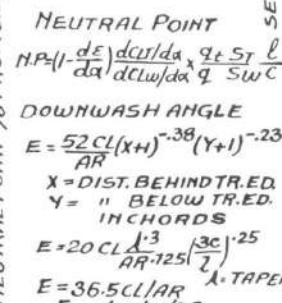 NEUTRAL POINT
N.P=(1-dε/dα) dCLT/dα / dCLw/dα x qt/q ST/Sw l/c
DOWNWASH ANGLE
E = 52 CL/AR (X+1)^-.38 (Y+1)^-.23
X = DIST. BEHIND TR. ED.
Y = " BELOW TR. ED.
IN CHORDS
E = 20 CL λ^.3/AR^.725 (3c/l)^.25
E = 36.5 CL/AR λ = TAPE
SE